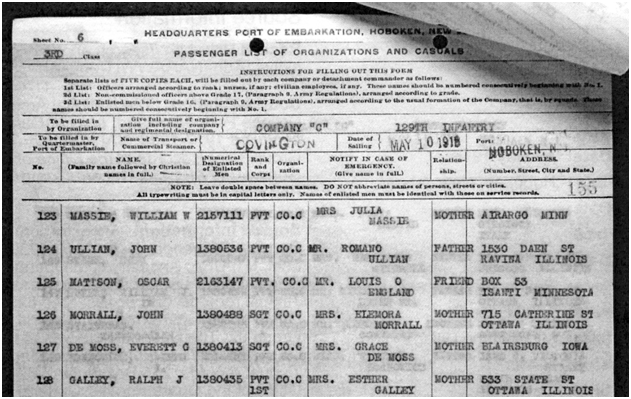 Sheet No. 6
HEADQUARTERS PORT OF EMBARKATION, HOBOKEN, NEW
3RD Class
PASSENGER LIST OF ORGANIZATIONS AND CASUALS
INSTRUCTIONS FOR FILLING OUT THIS FORM
Separate lists of FIVE COPIES EACH, will be filled out by each company or detachment commander as follows:
1st List: Officers arranged according to rank; nurses, if any; civilian employees, if any. These names should be numbered consecutively beginning with No. 1.
2d List: Non-commissioned officers above Grade 17, (Paragraph 9, Army Regulations), arranged according to grade.
3d List: Enlisted men below Grade 16, (Paragraph 9, Army Regulations), arranged according to the usual formation of the Company, that is, by squads. These
names should be numbered consecutively beginning with No. 1.
To be filled in by Organization
Give full name of organization including company and regimental designation.
COMPANY "C" 129TH INFANTRY
To be filled in by Quartermaster, Port of Embarkation
Name of Transport or Commercial Steamer.
COVINGTON
Date of Sailing
MAY 10 1918
Port:
HOBOKEN, N.
No.
NAME. (Family name followed by Christian names in full.)
Numerical Designation of Enlisted Men
Rank and Corps
Organization
NOTIFY IN CASE OF EMERGENCY. (Give name in full.)
Relationship.
ADDRESS. (Number, Street, City and State.)
NOTE: Leave double space between names. DO NOT abbreviate names of persons, streets or cities.
All typewriting must be in capital letters only. Names of enlisted men must be identical with these on service records.
155
123 MASSIE, WILLIAM W 2157111 PVT CO.C MRS JULIA MOTHER AIRARGO MINN
MASSIE
124 ULLIAN, JOHN 1380536 PVT CO.C MR. ROMANO FATHER 1530 DAEN ST
ULLIAN RAVINA ILLINOIS
125 MATTSON, OSCAR 2163147 PVT. CO.C MR. LOUIS O FRIEND BOX 53
ENGLAND ISANTI MINNESOTA
126 MORRALL, JOHN 1380488 SGT CO.C MRS. ELEMORA MOTHER 715 CATHERINE ST
MORRALL OTTAWA ILLINOIS
127 DE MOSS, EVERETT G 1380413 SGT CO.C MRS. GRACE MOTHER BLAIRSBURG IOWA
DE MOSS
128 GALLEY, RALPH J 1380435 PVT CO.C MRS. ESTHER MOTHER 533 STATE ST
1ST GALLEY OTTAWA ILLINOIS